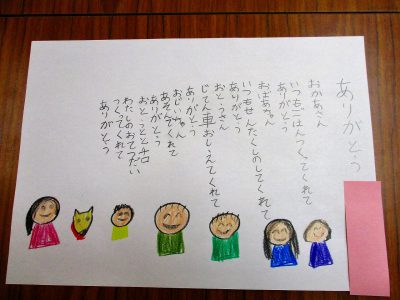 ありがとう
おかあさん
いつもごはんつくてくれて
ありがとう
おばあちゃん
いつもせんたくしのしてくれて
ありがとう
おとうさん
じてん車おしえてくれて
ありがとう
おじいちゃん
あそんでくれて
ありがとう
おとうととチロ
わたしのおてつだい
つくってくれて
ありがとう